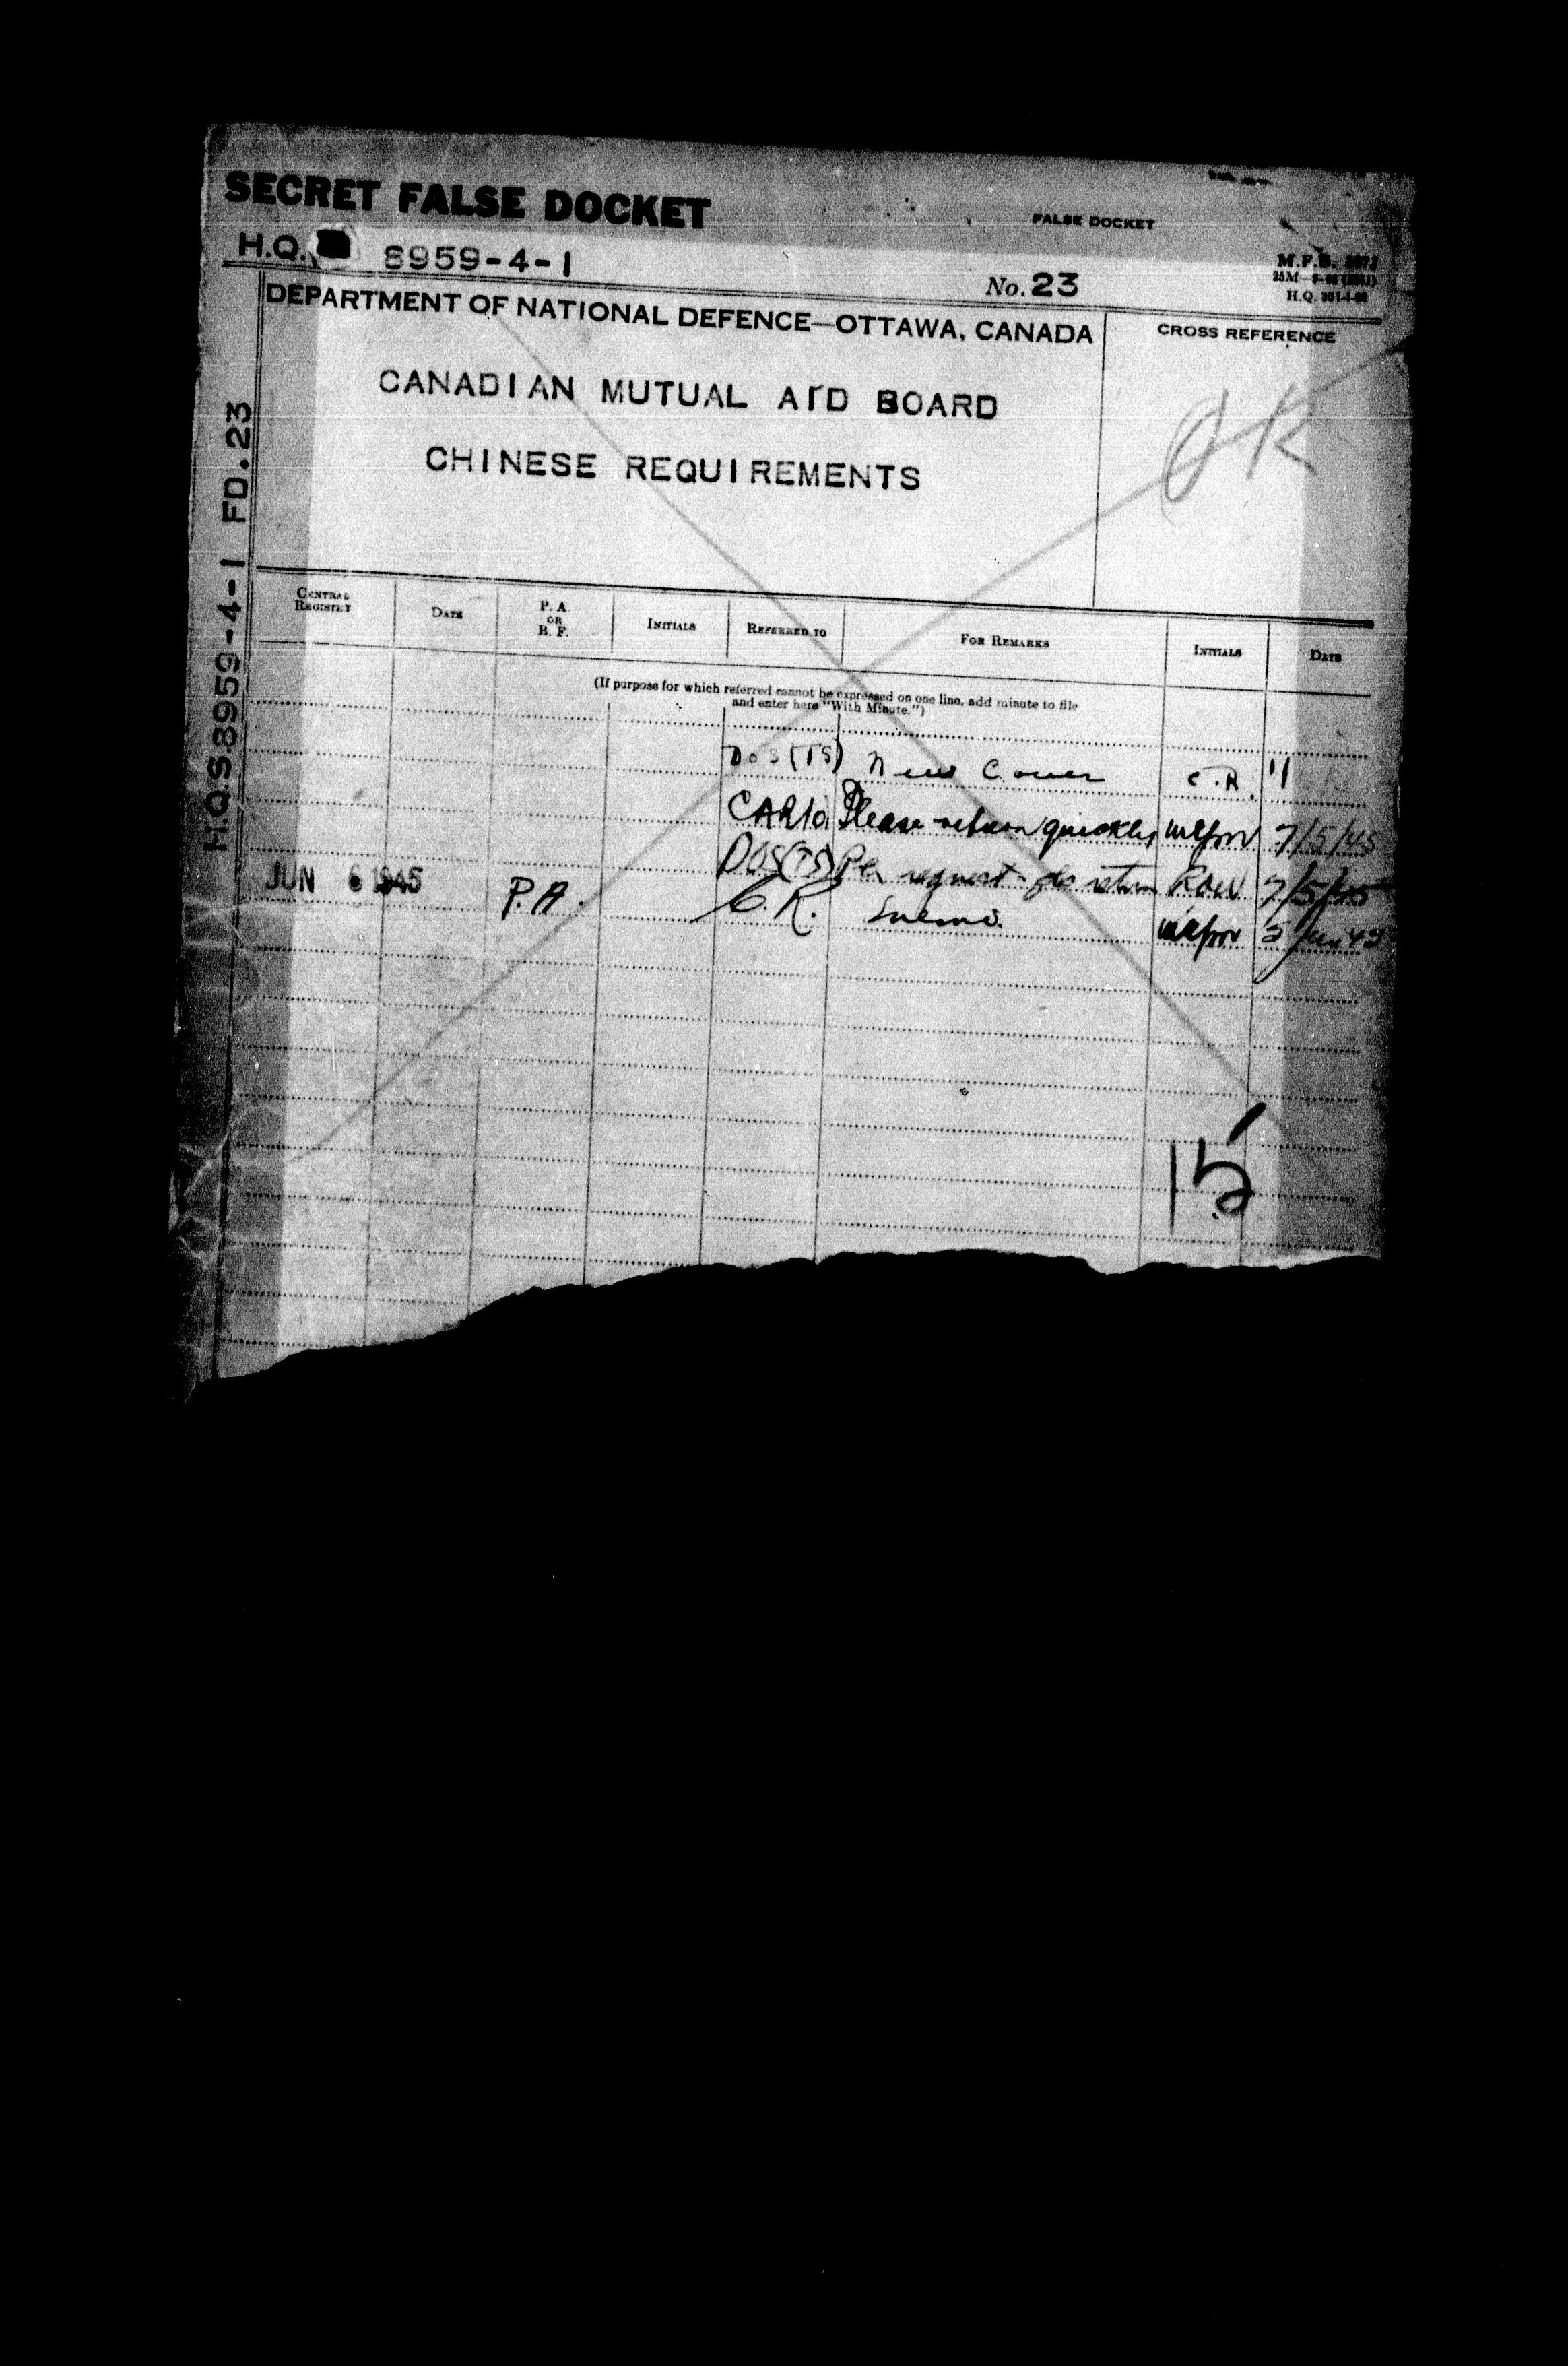 SECRET FALSE DOCKET
FALSE DOCKET
H.Q. 8959-4-1
No. 23
M.F.B.
H.Q.
DEPARTMENT OF NATIONAL DEFENCE—OTTAWA, CANADA
CROSS REFERENCE
CANADIAN MUTUAL AID BOARD
CHINESE REQUIREMENTS
OK
H.Q.S.8959-4-1 FD.23
CENTRAL REGISTRY
DATE
P. A. OR B. F.
INITIALS
REFERRED TO
FOR REMARKS
INITIALS
DATE
(If purpose for which referred cannot be expressed on one line, add minute to file
and enter here "With Minute.")
DOS(TS) New Cover C.R. 11
Please return quickly 7/5/45
DOS(TS) Per request pls return 7/5/45
JUN 6 1945 P.A. C.R. 5 Jun 45
15